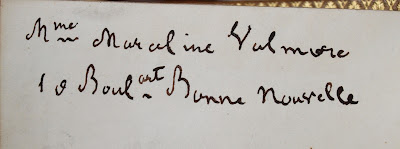 Mme Marceline Valmore
10 Boulart Bonne Nouvelle